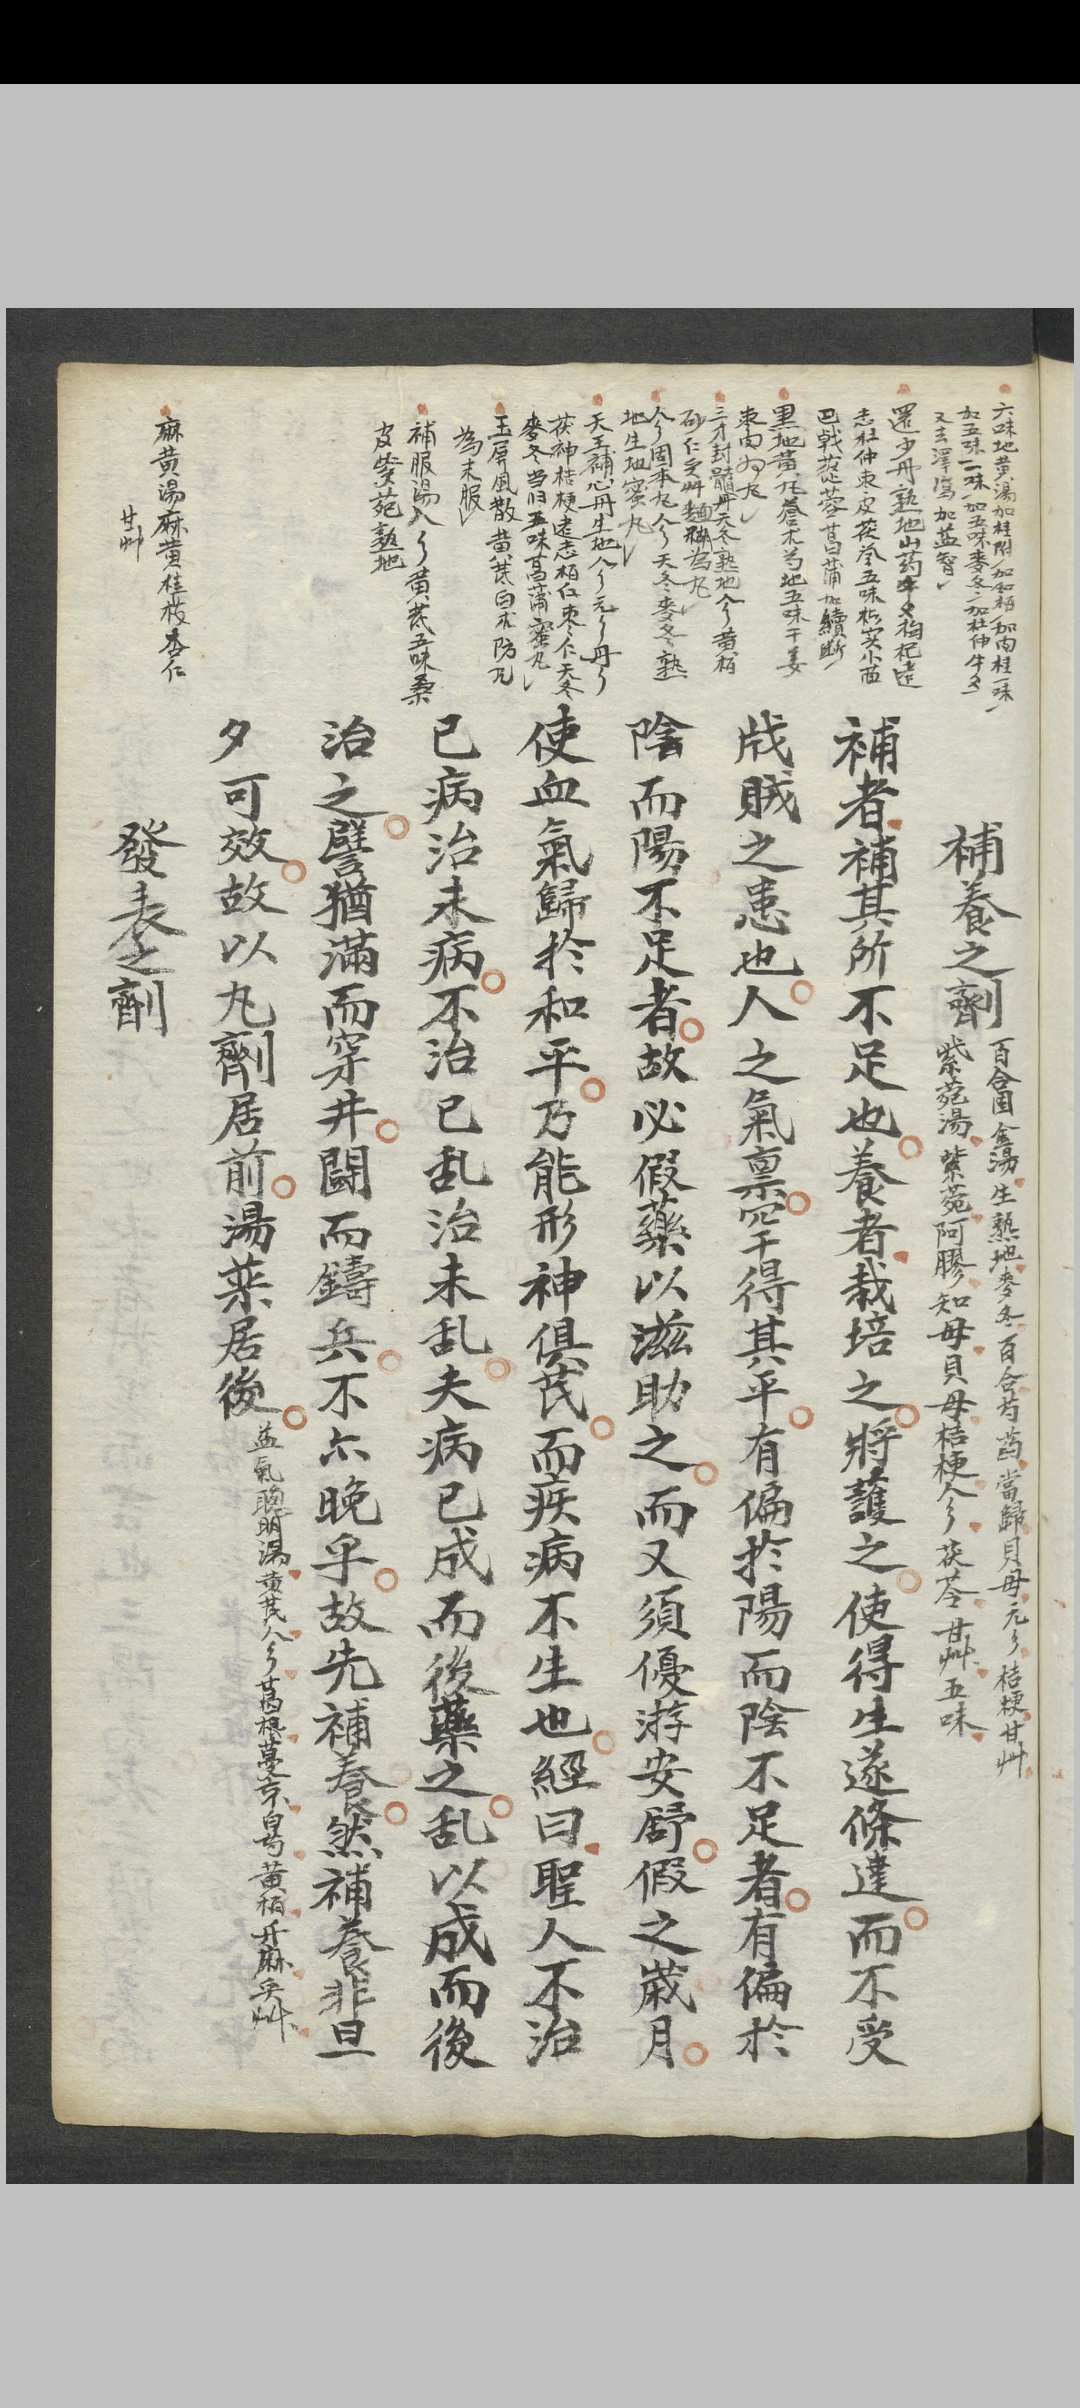 六味地黃湯加桂附 加知柏 加肉桂一味
加五味一味 加五味麥冬 加杜仲牛夕
又去澤瀉加益智
還少丹熟地山药牛夕枸杞遠
志杜仲束皮茯苓五味楮实小茴
巴戟蓯蓉菖蒲加續断
黑地黃丸蒼朮芍地五味干姜
束肉為丸
三才封髓丹天冬熟地人參黄栢
砂仁炙艸麵糊為丸
人參固本丸人參天冬麥冬熟
地生地蜜丸
天王補心丹生地人參元參丹參
茯神桔梗遠志栢仁枣仁天冬
麥冬当归五味菖蒲蜜丸
玉屏風散黄芪白朮防风
為末服
補肺湯人參黄芪五味桑
皮紫苑熟地
麻黄湯麻黄桂枝杏仁
甘艸
補養之劑
百合固金湯生熟地麥冬百合芍药當歸貝母元參桔梗甘艸
紫菀湯紫菀阿膠知母貝母桔梗人參茯苓甘艸五味
補者補其所不足也養者栽培之將護之使得生遂條達而不受
戕賊之患也人之氣禀罕得其平有偏扵陽而陰不足者有偏扵
陰而陽不足者故必假藥以滋助之而又須優游安舒假之歲月
使血氣歸扵和平乃能形神俱茂而疾病不生也經曰聖人不治
已病治未病不治已乱治未乱夫病已成而後藥之乱以成而後
治之譬猶滿而穿井鬪而鑄兵不亦晚乎故先補養然補養非旦
夕可效故以丸劑居前湯藥居後
益氣聰明湯黄芪人參葛根蔓京白芍黄栢升麻炙艸
發表之劑